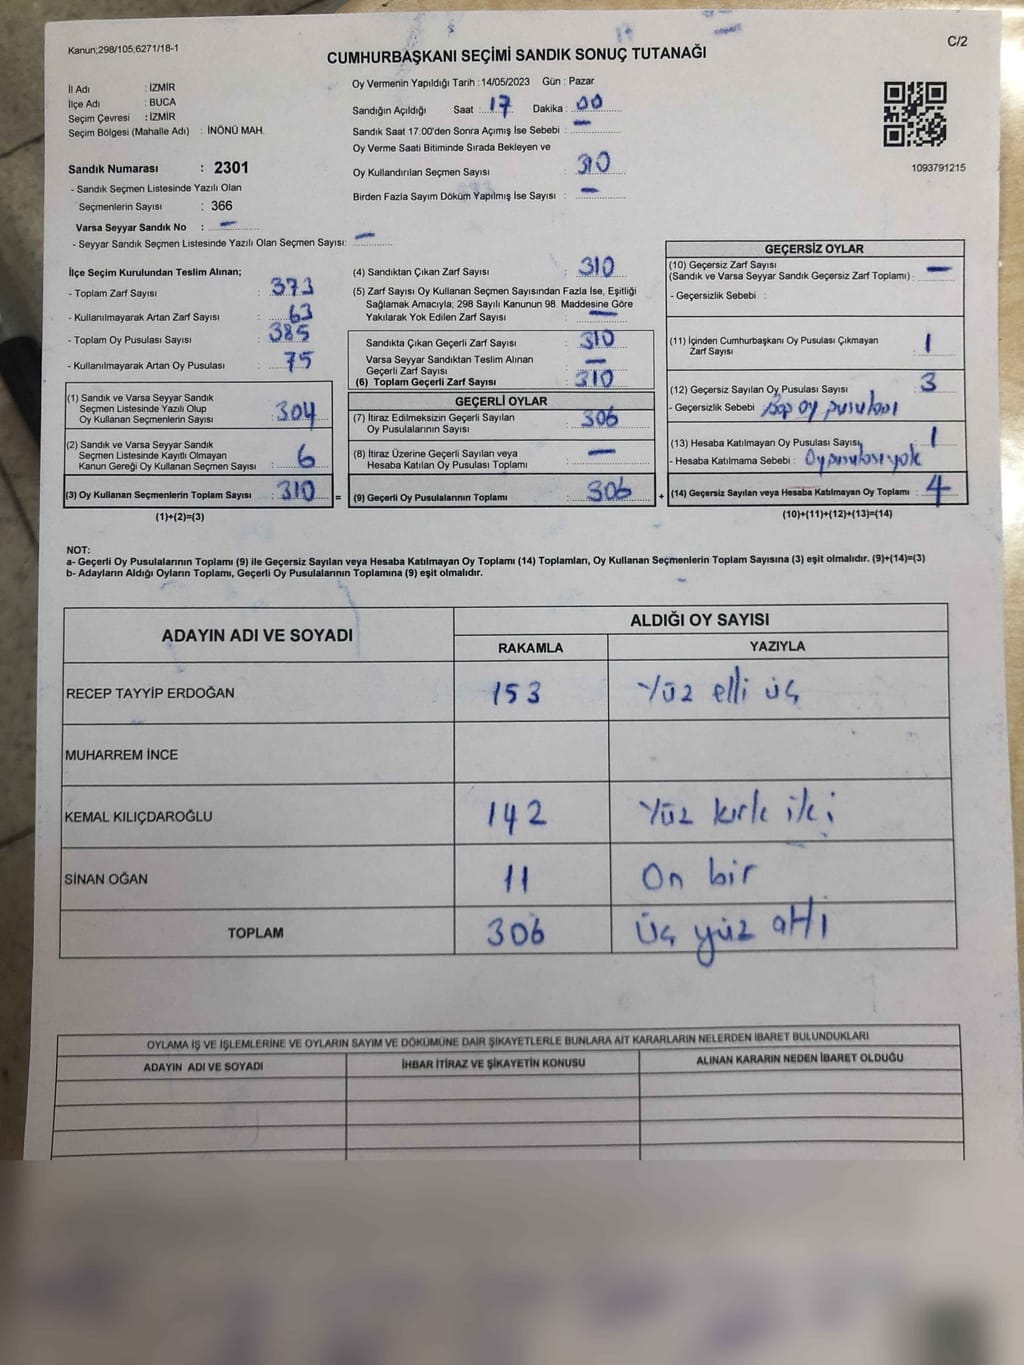 Kanun;298/105;6271/18-1
C/2
CUMHURBAŞKANI SEÇİMİ SANDIK SONUÇ TUTANAĞI
İl Adı : İZMİR
İlçe Adı : BUCA
Seçim Çevresi : İZMİR
Seçim Bölgesi (Mahalle Adı) : İNÖNÜ MAH.
Sandık Numarası : 2301
- Sandık Seçmen Listesinde Yazılı Olan
Seçmenlerin Sayısı : 366
Varsa Seyyar Sandık No : —
- Seyyar Sandık Seçmen Listesinde Yazılı Olan Seçmen Sayısı: —
Oy Vermenin Yapıldığı Tarih : 14/05/2023 Gün : Pazar
Sandığın Açıldığı Saat : 17 Dakika : 00
Sandık Saat 17:00'den Sonra Açımış İse Sebebi : —
Oy Verme Saati Bitiminde Sırada Bekleyen ve
Oy Kullandırılan Seçmen Sayısı : 310
Birden Fazla Sayım Döküm Yapılmış İse Sayısı : —
1093791215
İlçe Seçim Kurulundan Teslim Alınan;
- Toplam Zarf Sayısı : 373
- Kullanılmayarak Artan Zarf Sayısı : 63
- Toplam Oy Pusulası Sayısı : 385
- Kullanılmayarak Artan Oy Pusulası : 75
(1) Sandık ve Varsa Seyyar Sandık
Seçmen Listesinde Yazılı Olup
Oy Kullanan Seçmenlerin Sayısı : 304
(2) Sandık ve Varsa Seyyar Sandık
Seçmen Listesinde Kayıtlı Olmayan
Kanun Gereği Oy Kullanan Seçmen Sayısı : 6
(3) Oy Kullanan Seçmenlerin Toplam Sayısı : 310 =
(1)+(2)=(3)
(4) Sandıktan Çıkan Zarf Sayısı : 310
(5) Zarf Sayısı Oy Kullanan Seçmen Sayısından Fazla İse, Eşitliği
Sağlamak Amacıyla; 298 Sayılı Kanunun 98. Maddesine Göre
Yakılarak Yok Edilen Zarf Sayısı : —
Sandıkta Çıkan Geçerli Zarf Sayısı : 310
Varsa Seyyar Sandıktan Teslim Alınan
Geçerli Zarf Sayısı : —
(6) Toplam Geçerli Zarf Sayısı : 310
GEÇERLİ OYLAR
(7) İtiraz Edilmeksizin Geçerli Sayılan
Oy Pusulalarının Sayısı : 306
(8) İtiraz Üzerine Geçerli Sayılan veya
Hesaba Katılan Oy Pusulası Toplamı : —
(9) Geçerli Oy Pusulalarının Toplamı : 306 +
GEÇERSİZ OYLAR
(10) Geçersiz Zarf Sayısı
(Sandık ve Varsa Seyyar Sandık Geçersiz Zarf Toplamı) : —
- Geçersizlik Sebebi :
(11) İçinden Cumhurbaşkanı Oy Pusulası Çıkmayan
Zarf Sayısı : 1
(12) Geçersiz Sayılan Oy Pusulası Sayısı : 3
- Geçersizlik Sebebi : oy pusulası
(13) Hesaba Katılmayan Oy Pusulası Sayısı : 1
- Hesaba Katılmama Sebebi : Oy pusulası yok
(14) Geçersiz Sayılan veya Hesaba Katılmayan Oy Toplamı : 4
(10)+(11)+(12)+(13)=(14)
NOT:
a- Geçerli Oy Pusulalarının Toplamı (9) ile Geçersiz Sayılan veya Hesaba Katılmayan Oy Toplamı (14) Toplamları, Oy Kullanan Seçmenlerin Toplam Sayısına (3) eşit olmalıdır. (9)+(14)=(3)
b- Adayların Aldığı Oyların Toplamı, Geçerli Oy Pusulalarının Toplamına (9) eşit olmalıdır.
ADAYIN ADI VE SOYADI
ALDIĞI OY SAYISI
RAKAMLA YAZIYLA
RECEP TAYYİP ERDOĞAN 153 Yüz elli üç
MUHARREM İNCE
KEMAL KILIÇDAROĞLU 142 Yüz kırk iki
SİNAN OĞAN 11 On bir
TOPLAM 306 Üç yüz altı
OYLAMA İŞ VE İŞLEMLERİNE VE OYLARIN SAYIM VE DÖKÜMÜNE DAİR ŞİKAYETLERLE BUNLARA AİT KARARLARIN NELERDEN İBARET BULUNDUKLARI
ADAYIN ADI VE SOYADI İHBAR İTİRAZ VE ŞİKAYETİN KONUSU ALINAN KARARIN NEDEN İBARET OLDUĞU